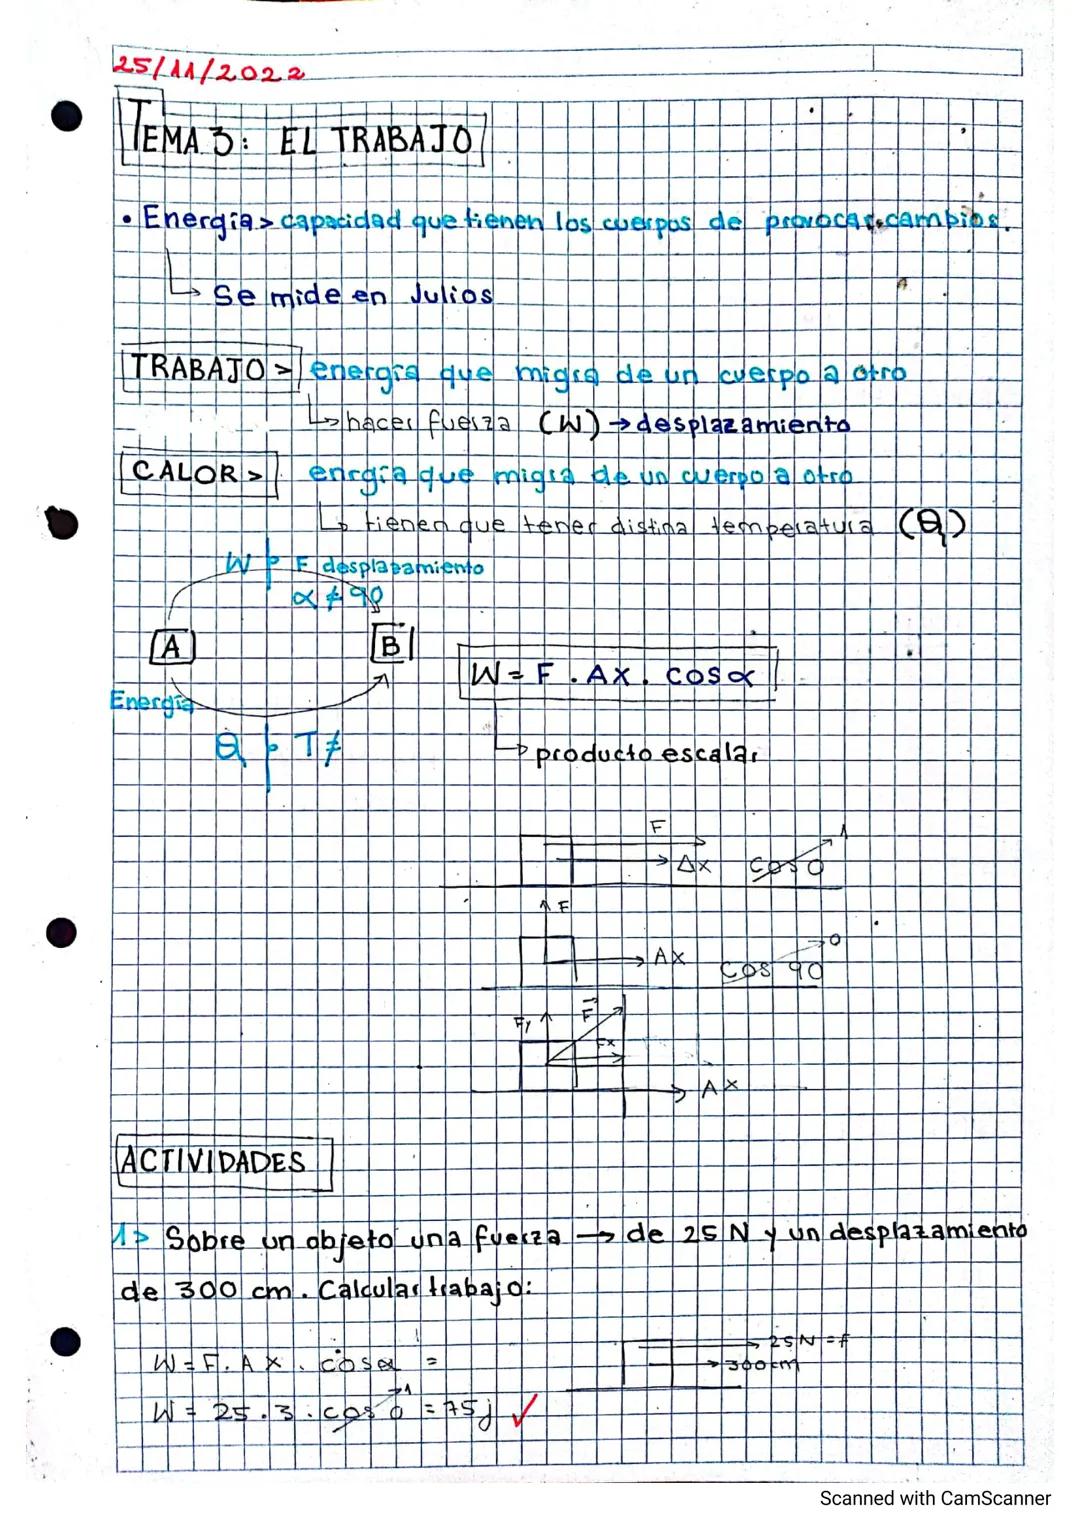 25/11/2022
TEMA 3: EL TRABAJO
• Energía > capacidad que tienen los cuerpos de provocar cambios.
↳ Se mide en Julios
TRABAJO > energía que migra de un cuerpo a otro
↳ hacer fuerza (W) → desplazamiento
CALOR > enrgía que migra de un cuerpo a otro
↳ tienen que tener distina temperatura (Q)
W F desplazamiento
α ≠ 90
A B
W = F . ΔX . cosα
Energía
Q T ≠
↳ producto escalar
F
ΔX cos 0 1
F
ΔX cos 90 0
Fy F
Fx
ΔX
ACTIVIDADES
1> Sobre un objeto una fuerza → de 25 N y un desplazamiento
de 300 cm. Calcular trabajo:
25N = f
W = F. ΔX . cosα = 300cm
W = 25 . 3 . cos 0 1 = 75j ✓
Scanned with CamScanner